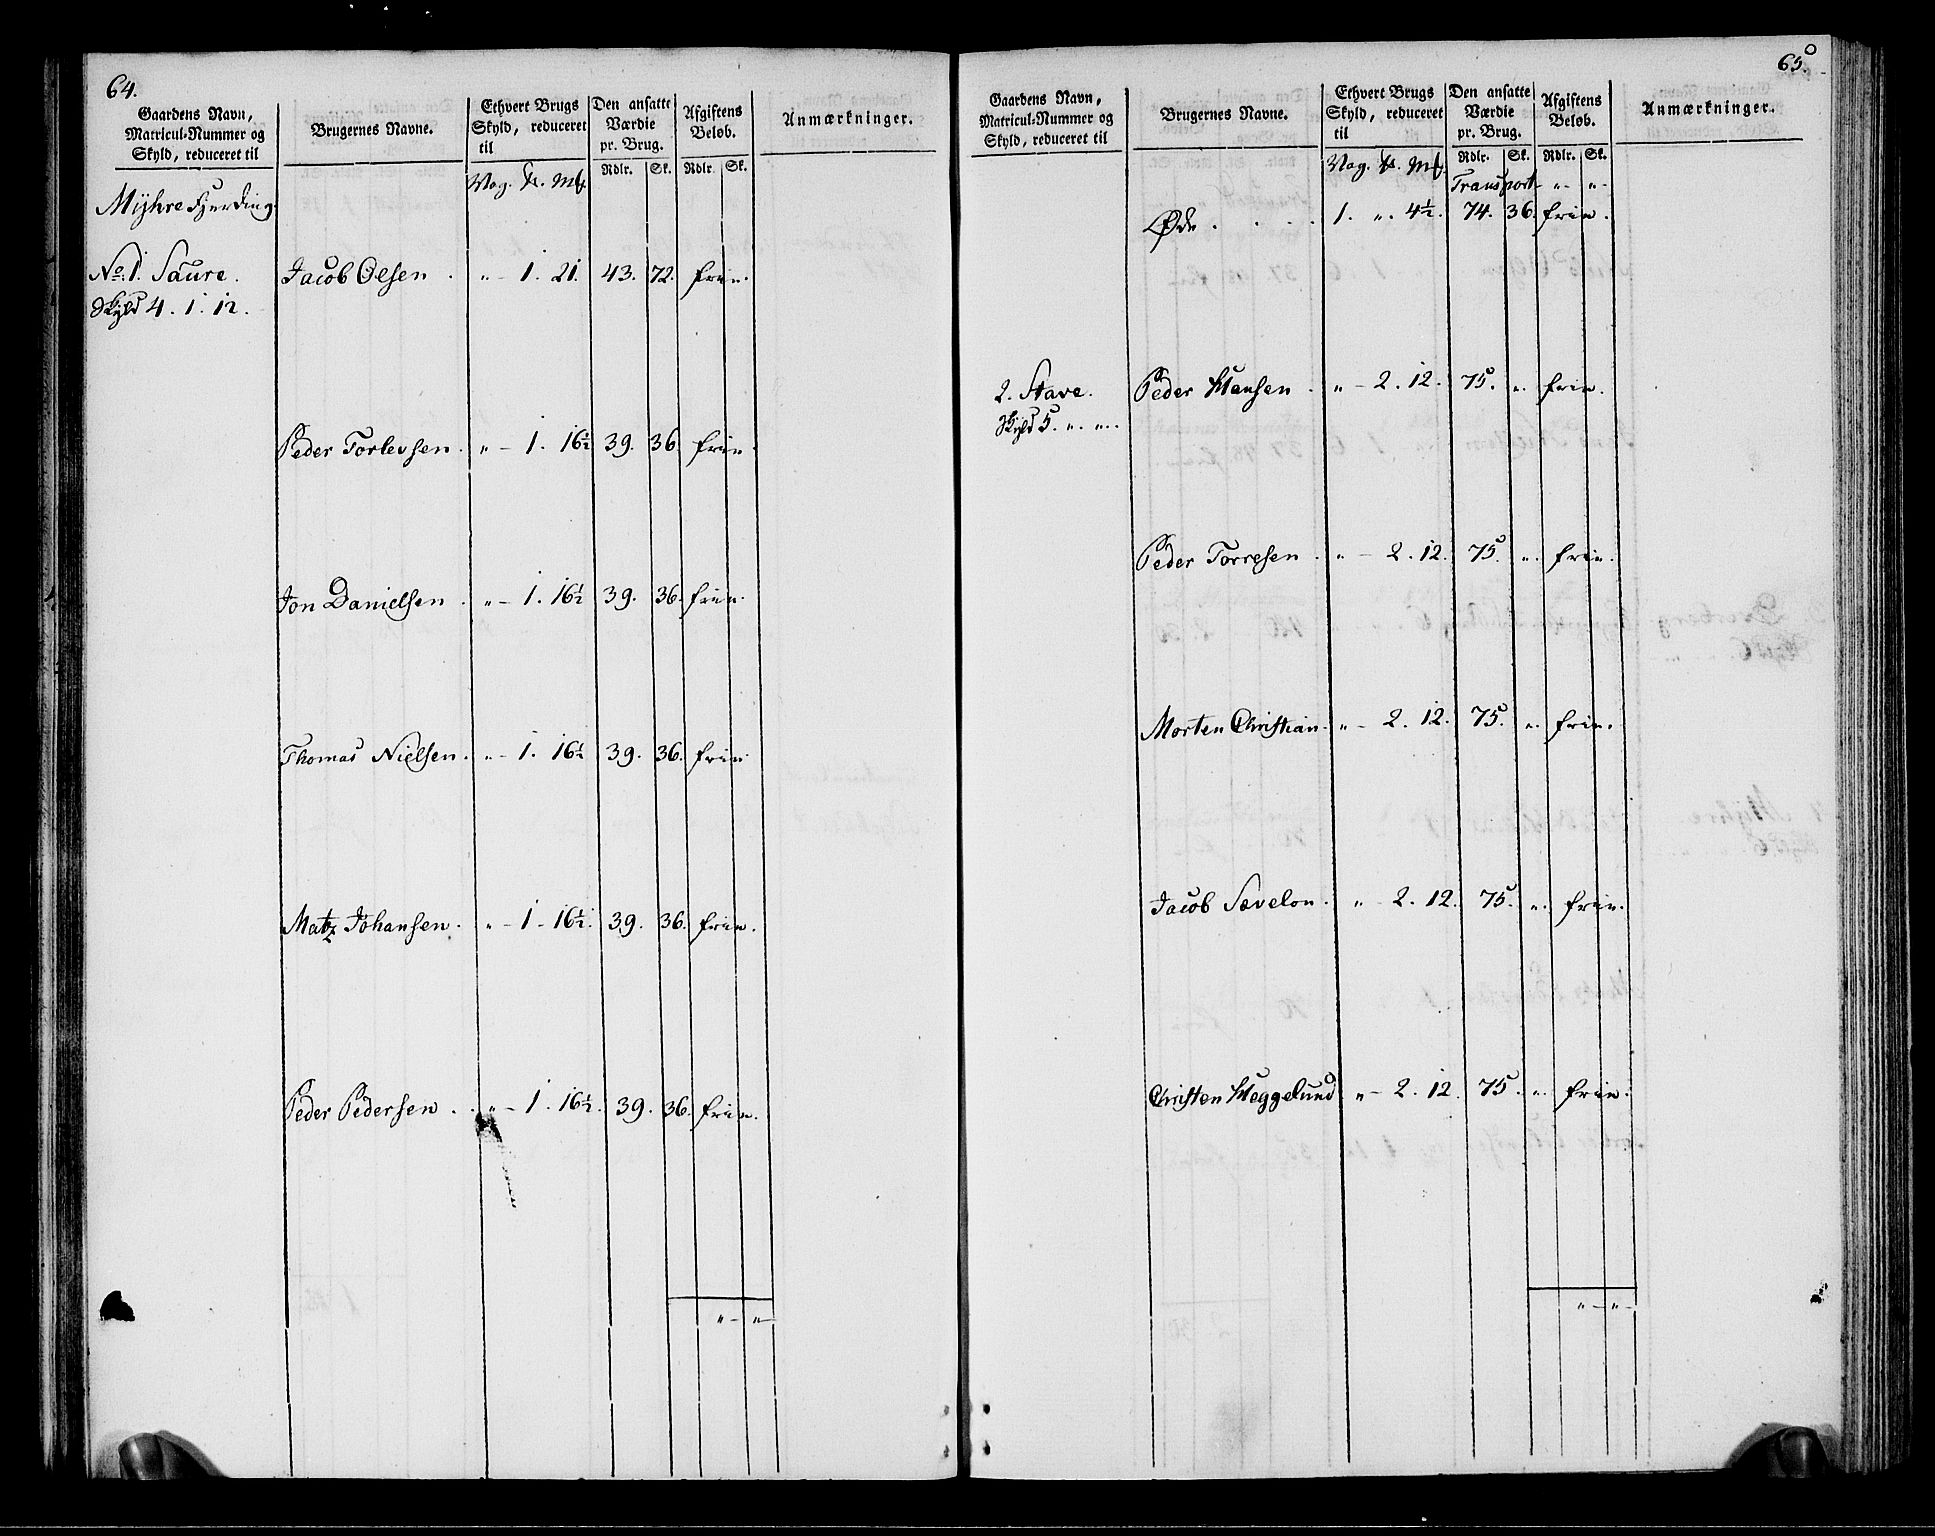 64.
Gaardens Navn, Matricul-Nummer og Skyld, reduceret til
Brugernes Navne.
Ethvert Brugs Skyld, reduceret til
Den ansatte Værdie pr. Brug.
Afgiftens Beløb.
Anmærkninger.
Vog. ℔. Mk. Rdlr. Sk. Rdlr. Sk.
Mÿhre Fjerding.
No. 1. Saure. Jacob Olsen . „ - 1. 21. 43. 72. frie.
Skyld 4. 1. 12.
Peder Torlevsen. „ - 1. 16½ 39. 36. frie.
Jon Danielsen . „ - 1. 16½ 39. 36. frie.
Thomas Nielsen. „ - 1. 16½ 39. 36. frie
Matz Johansen. „ - 1 - 16½. 39. 36. frie.
Peder Pedersen . . „ - 1. 16½. 39. 36. frie.
„ - „ -
65.
Gaardens Navn, Matricul-Nummer og Skyld, reduceret til
Brugernes Navne.
Ethvert Brugs Skyld, reduceret til
Den ansatte Værdie pr. Brug.
Afgiftens Beløb.
Anmærkninger.
Vog. ℔. Mk. Rdlr. Sk. Rdlr. Sk.
Transport - „ - „ -
Øde . . . 1. „. 4½. 74. 36. frie.
2. Stave. Peder Hansen . „ - 2. 12. 75. „. frie.
Skyld 5. „. „.
Peder Torresen . „ - 2. 12. 75. „. frie.
Morten Christian. „ - 2. 12. 75. „. frie.
Jacob Sævelon. „ - 2. 12. 75. „. frie.
Christen Heggelund „ - 2. 12. 75. „. frie.
„ - „ -